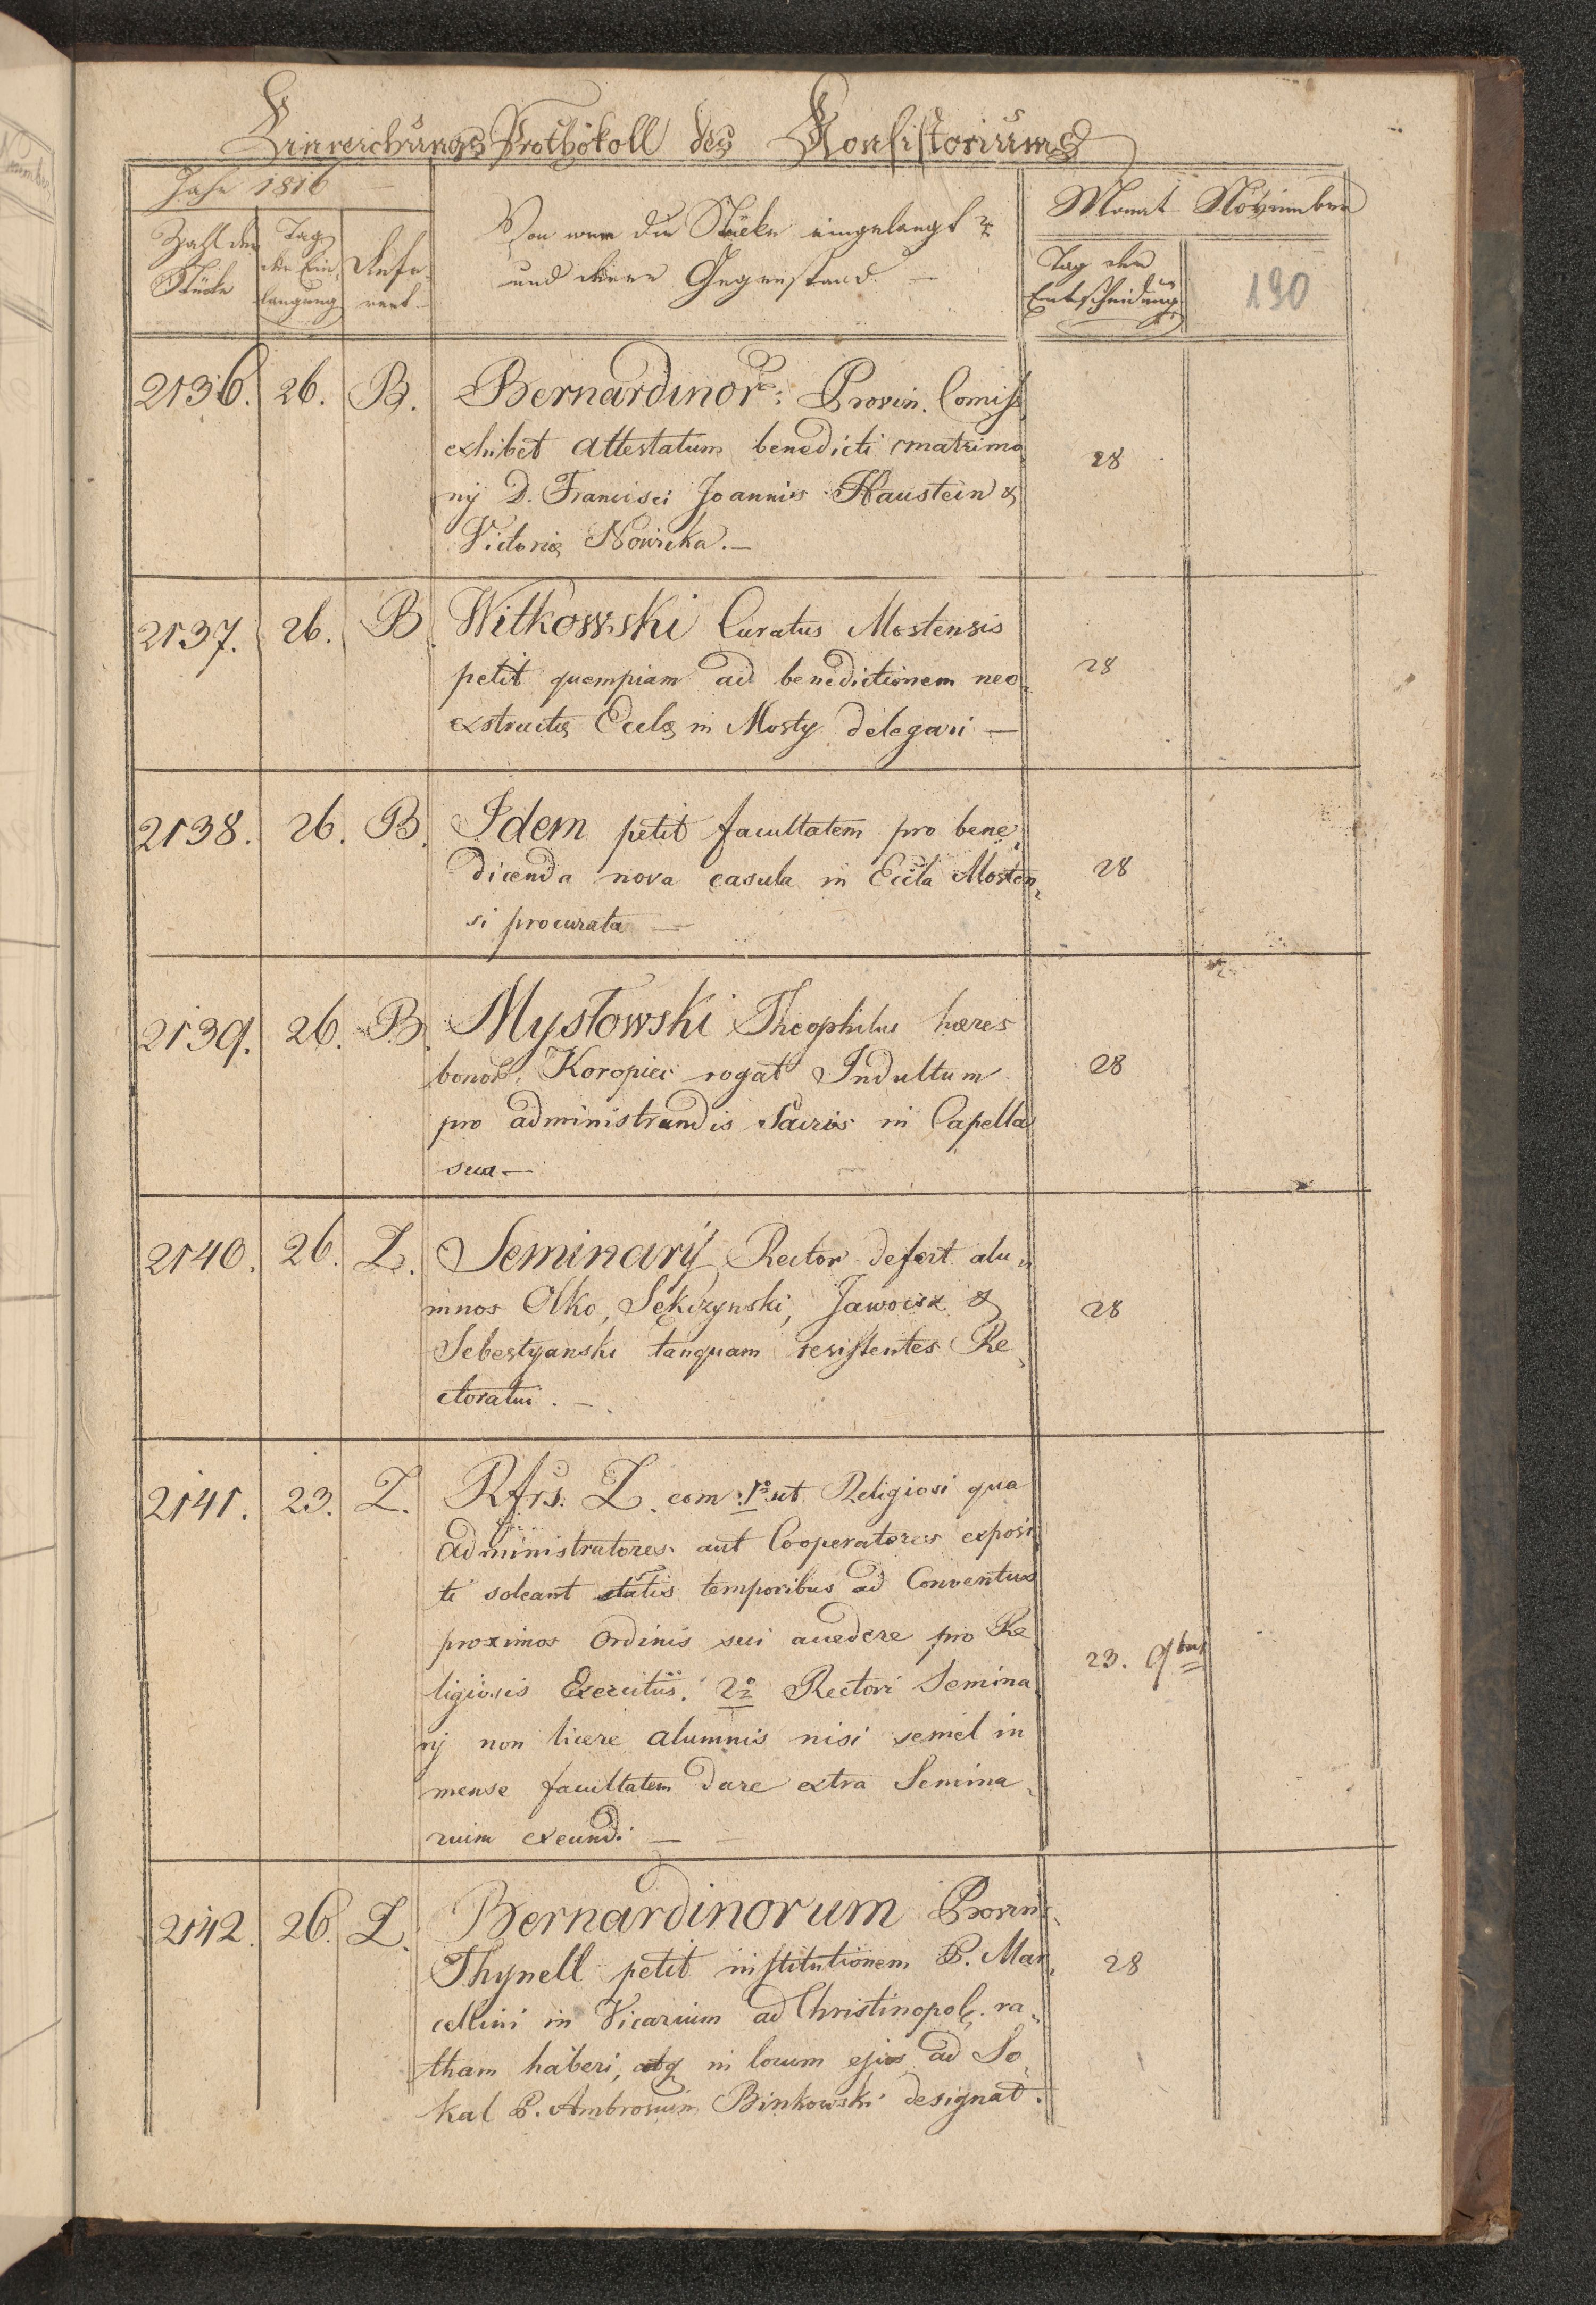 Einreichungs Prothokoll des Konsistoriums
Jahr 1816
Monat November
Zahl der Stücke
Tag der Einlangung
Referent
Von wem die Stücke eingelangt &
und deren Gegenstand. —
Tag der Entscheidung
190
2136. 26. B. Bernardinor: Provin. Comiss
exhibet attestatum benedicti matrimo
nÿ D. Francisci Joannis Haustein &
Victoriæ Nowicka. —
28
2137. 26. B. Witkowski Curatus Mostensis
petit quempiam ad benedictionem neo
exstructæ Eccles in Mosty delegari —
28
2138. 26. B. Idem petit facultatem pro bene
dicenda nova casula in Eccla Mosten
si procurata —
28
2139. 26. B. Mysłowski Theophilus hæres
bonor. Koropiec rogat Indultum
pro administrandis Sacris in Capella
sua —
28
2140. 26. Z. Seminarÿ Rector defert alu
mnos Olko, Sękizynski, Jaworsz &
Sebestyanski tanquam resistentes Re
ctoratui. —
28
2141. 23. Z. Rfrs. Z. com: 1º ut Religiosi qua
administratores aut Cooperatores exposi
ti soleant statis temporibus ad Conventus
proximos Ordinis sui accedere pro Re
ligiosis Exercitiis. 2º Rectori Semina
rÿ non licere alumnis nisi semel in
mense facultatem dare extra Semina
rium exeundi —
23. 9bris
2142. 26. Z. Bernardinorum Provins
Thynell petit institutionem P. Mar
cellini in Vicarium ad Christinopol. ra
tham haberi, atq in locum ejus ad So
kal P. Ambrosium Binkowski designat.
28